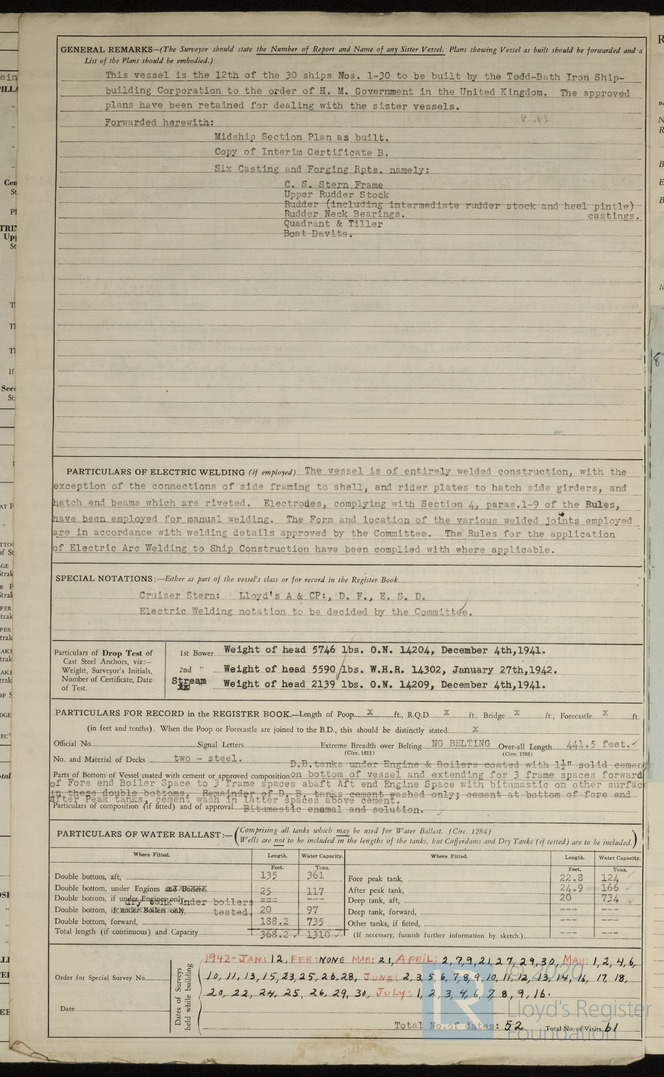 GENERAL REMARKS—(The Surveyor should state the Number of Report and Name of any Sister Vessel. Plans showing Vessel as built should be forwarded and a
List of the Plans should be embodied.)
This vessel is the 12th of the 30 ships Nos. 1-30 to be built by the Todd-Bath Iron Ship-
building Corporation to the order of H. M. Government in the United Kingdom. The approved
plans have been retained for dealing with the sister vessels.
Forwarded herewith:
Midship Section Plan as built.
Copy of Interim Certificate B.
Six Casting and Forging Rpts. namely:
C. S. Stern Frame
Upper Rudder Stock
Rudder (including intermediate rudder stock and heel pintle)
Rudder Neck Bearings. castings.
Quadrant & Tiller
Boat Davits.
PARTICULARS OF ELECTRIC WELDING (if employed) The vessel is of entirely welded construction, with the
exception of the connections of side framing to shell, and rider plates to hatch side girders, and
hatch end beams which are riveted. Electrodes, complying with Section 4, paras.1-9 of the Rules,
have been employed for manual welding. The Form and location of the various welded joints employed
are in accordance with welding details approved by the Committee. The Rules for the application
of Electric Arc Welding to Ship Construction have been complied with where applicable.
SPECIAL NOTATIONS:—Either as part of the vessel's class or for record in the Register Book
Cruiser Stern: Lloyd's A & CP:, D. F., E. S. D.
Electric Welding notation to be decided by the Committee.
Particulars of Drop Test of
Cast Steel Anchors, viz:—
Weight, Surveyor's Initials,
Number of Certificate, Date
of Test.
1st Bower Weight of head 5746 lbs. O.N. 14204, December 4th,1941.
2nd " Weight of head 5590 lbs. W.H.R. 14302, January 27th,1942.
Stream Weight of head 2139 lbs. O.N. 14209, December 4th,1941.
PARTICULARS FOR RECORD in the REGISTER BOOK.—Length of Poop x ft., R.Q.D. x ft., Bridge x ft., Forecastle x ft.
(in feet and tenths). When the Poop or Forecastle are joined to the B.D., this should be distinctly stated x
Official No. Signal Letters Extreme Breadth over Belting NO BELTING Over-all Length 441.5 feet.
(Circ. 1611) (Circ. 1703)
No. and Material of Decks two - steel.
D.B.tanks under Engine & Boilers coated with 1½" solid cement
Parts of Bottom of Vessel coated with cement or approved composition on bottom of vessel and extending for 3 frame spaces forward
of Fore end Boiler Space to 3 Frame spaces abaft Aft end Engine Space with bitumastic on other surfac
in these double bottoms. Remainder of D. B. tanks cement washed only; cement at bottom of fore and
after Peak tanks, cement wash in latter spaces above cement.
Particulars of composition (if fitted) and of approval Bitumastic enamel and solution.
PARTICULARS OF WATER BALLAST:—(Comprising all tanks which may be used for Water Ballast. (Circ. 1284)
Wells are not to be included in the lengths of the tanks, but Cofferdams and Dry Tanks (if tested) are to be included.)
Where Fitted. Length. Water Capacity. Where Fitted. Length. Water Capacity.
Feet. Tons. Feet. Tons.
Double bottom, aft, 135 361 Fore peak tank, 22.8 124
Double bottom, under Engines and Boilers, 25 117 After peak tank, 24.9 166
Double bottom, if under Engines only, --- --- Deep tank, aft, 20 734
dry tank under boilers
Double bottom, if under Boilers only, tested. 20 97 Deep tank, forward, --- ---
Double bottom, forward, 188.2 735 Other tanks, if fitted, --- ---
Total length (if continuous) and Capacity 368.2 1310 (If necessary, furnish further information by sketch.) --- ---
Order for Special Survey No.
Date
Dates of Surveys
held while building
1942-JAN: 12, FEB: NONE MAR: 21, APRIL: 2, 7, 9, 21, 27, 29, 30, MAY: 1, 2, 4, 6,
10, 11, 13, 15, 23, 25, 26, 28, JUNE: 2, 3, 5, 6, 7, 8, 9, 10, 11, 12, 13, 14, 16, 17, 18,
20, 22, 24, 25, 26, 29, 30, JULY: 1, 2, 3, 4, 6, 7, 8, 9, 16.
Total No. of dates: 52 Total No. of Visits 61
© 2020
Lloyd's Register
Foundation